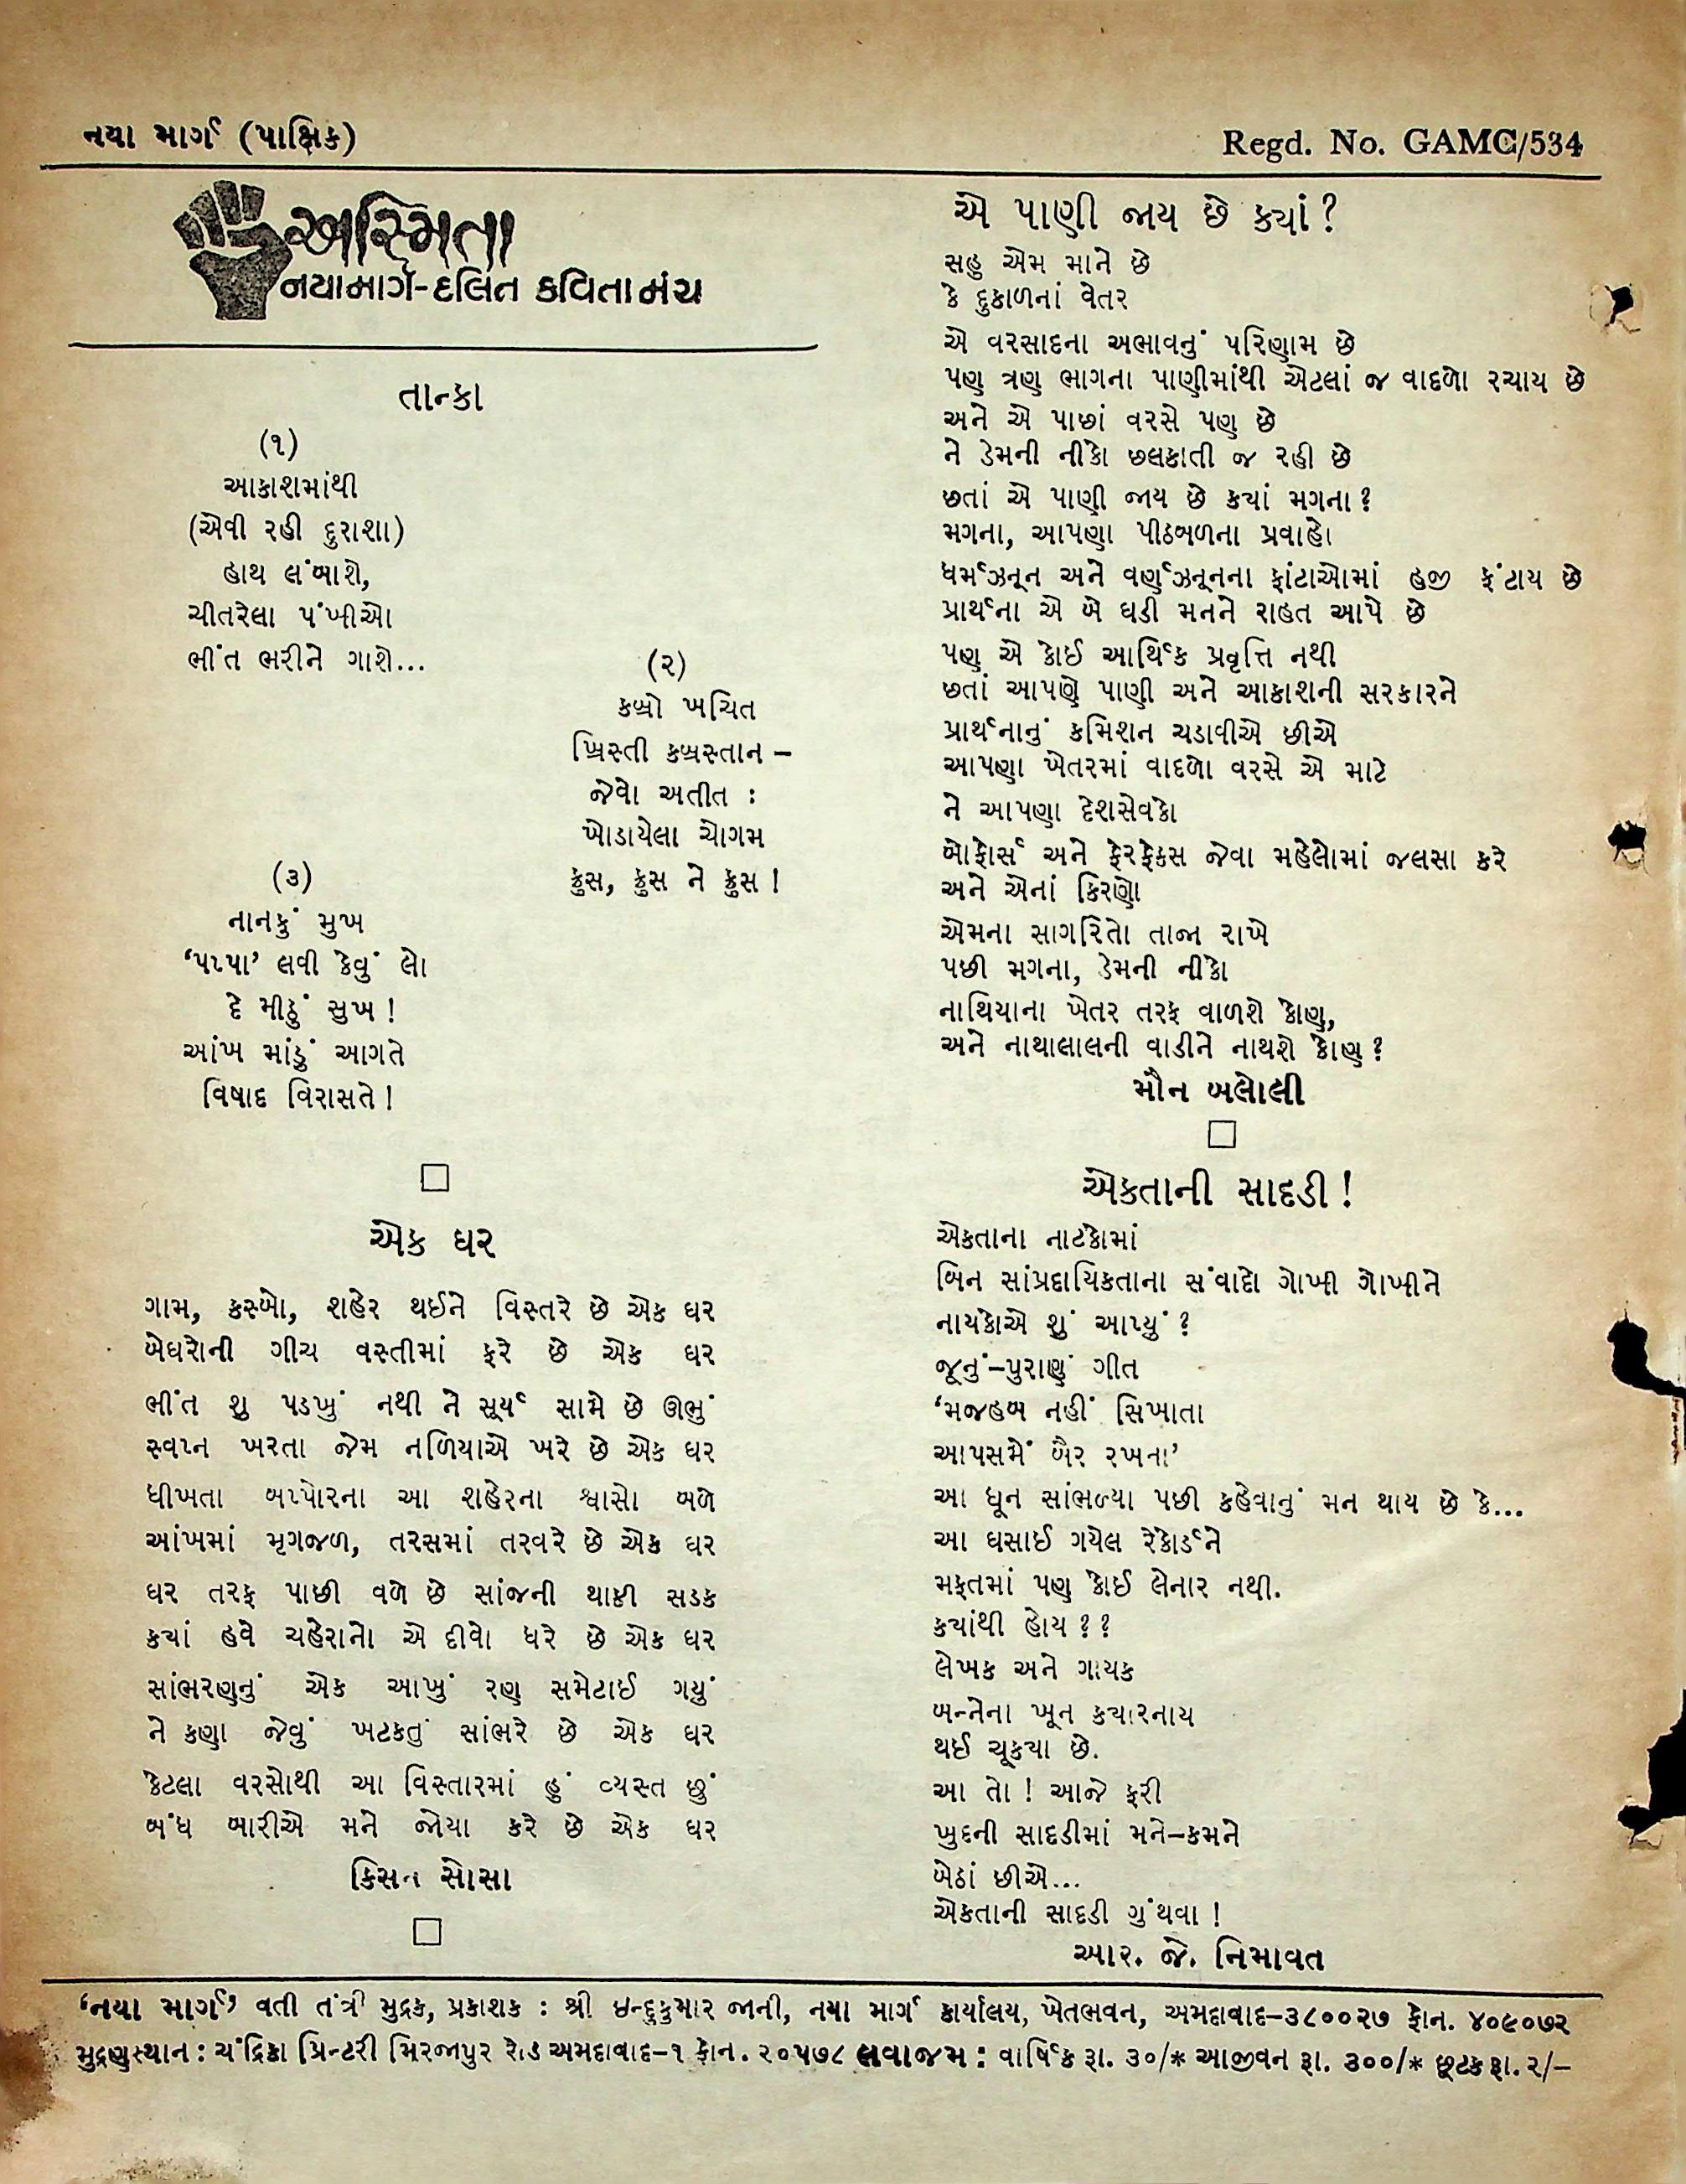 નયા માર્ગ (પાક્ષિક)
Regd. No. GAMC/534
અસ્મિતા
નયામાર્ગ-દલિત કવિતામંચ
તાન્કા
(૧)
આકાશમાંથી
(એવી રહી દુરાશા)
હાથ લંબાશે,
ચીતરેલા પંખીઓ
ભીંત ભરીને ગાશે...
(૨)
કબ્રો ખચિત
ખ્રિસ્તી કબ્રસ્તાન –
જેવો અતીત :
ખોડાયેલા ચોગમ
ક્રુસ, ક્રુસ ને ક્રુસ !
(૩)
નાનકું મુખ
‘પપ્પા’ લવી કેવું લો
દે મીઠું સુખ !
આંખ માંડું આગતે
વિષાદ વિરાસતે !
એક ઘર
ગામ, કસ્બો, શહેર થઈને વિસ્તરે છે એક ઘર
બેઘરોની ગીચ વસ્તીમાં ફરે છે એક ઘર
ભીંત શુ પડખું નથી ને સૂર્ય સામે છે ઊભું
સ્વપ્ન ખરતા જેમ નળિયાએ ખરે છે એક ઘર
ધીખતા બપ્પોરના આ શહેરના શ્વાસો બળે
આંખમાં મૃગજળ, તરસમાં તરવરે છે એક ઘર
ઘર તરફ પાછી વળે છે સાંજની થાકી સડક
કયાં હવે ચહેરાનો એ દીવો ધરે છે એક ઘર
સાંભરણનું એક આખું રણ સમેટાઈ ગયું
ને કણા જેવું ખટકતું સાંભરે છે એક ઘર
કેટલા વરસોથી આ વિસ્તારમાં હું વ્યસ્ત છું
બંધ બારીએ મને જોયા કરે છે એક ઘર
કિસન સોસા
એ પાણી જાય છે ક્યાં ?
સહુ એમ માને છે
કે દુકાળનાં વેતર
એ વરસાદના અભાવનું પરિણામ છે
પણ ત્રણ ભાગના પાણીમાંથી એટલાં જ વાદળો રચાય છે
અને એ પાછાં વરસે પણ છે
ને ડેમની નીકો છલકાતી જ રહી છે
છતાં એ પાણી જાય છે કયાં મગના ?
મગના, આપણા પીઠબળના પ્રવાહો
ધર્મઝનૂન અને વર્ણઝનૂનના ફાંટાઓમાં હજી ફંટાય છે
પ્રાર્થના એ બે ઘડી મનને રાહત આપે છે
પણ એ કોઈ આર્થિક પ્રવૃત્તિ નથી
છતાં આપણે પાણી અને આકાશની સરકારને
પ્રાર્થનાનું કમિશન ચડાવીએ છીએ
આપણા ખેતરમાં વાદળો વરસે એ માટે
ને આપણા દેશસેવકો
બોફોર્સ અને ફેરફેકસ જેવા મહેલોમાં જલસા કરે
અને એનાં કિરણો
એમના સાગરિતો તાજા રાખે
પછી મગના, ડેમની નીકો
નાથિયાના ખેતર તરફ વાળશે કોણ,
અને નાથાલાલની વાડીને નાથશે કોણ ?
મૌન બલોલી
એકતાની સાદડી !
એકતાના નાટકોમાં
બિન સાંપ્રદાયિકતાના સંવાદો ગોખી ગોખીને
નાયકોએ શું આપ્યું ?
જૂનું–પુરાણું ગીત
‘મજહબ નહીં સિખાતા
આપસમેં બૈર રખના’
આ ધૂન સાંભળ્યા પછી કહેવાનું મન થાય છે કે...
આ ઘસાઈ ગયેલ રેકોર્ડને
મફતમાં પણ કોઈ લેનાર નથી.
કયાંથી હોય ? ?
લેખક અને ગાયક
બન્નેના ખૂન કયારનાય
થઈ ચૂકયા છે.
આ તો ! આજે ફરી
ખુદની સાદડીમાં મને–કમને
બેઠાં છીએ...
એકતાની સાદડી ગુંથવા !
આર. જે. નિમાવત
‘નયા માર્ગ’ વતી તંત્રી મુદ્રક, પ્રકાશક : શ્રી ઇન્દુકુમાર જાની, નયા માર્ગ કાર્યાલય, ખેતભવન, અમદાવાદ–૩૮૦૦૨૭ ફોન. ૪૦૯૦૭૨
મુદ્રણસ્થાન : ચંદ્રિકા પ્રિન્ટરી મિરજાપુર રોડ અમદાવાદ–૧ ફોન. ૨૦૫૭૮ લવાજમ : વાર્ષિક રૂા. ૩૦/* આજીવન રૂા. ૩૦૦/* છૂટક રૂા. ૨/–